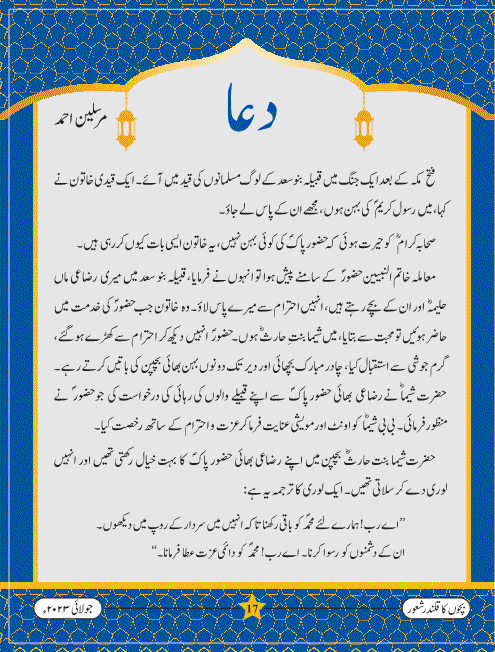 دعا
مرسلین احمد
فتح مکہ کے بعد ایک جنگ میں قبیلہ بنو سعد کے لوگ مسلمانوں کی قید میں آئے۔ ایک قیدی خاتون نے
کہا، میں رسول کریمؐ کی بہن ہوں، مجھے ان کے پاس لے جاؤ۔
صحابہ کرامؓ کو حیرت ہوئی کہ حضور پاکؐ کی کوئی بہن نہیں، یہ خاتون ایسی بات کیوں کر رہی ہیں۔
معاملہ خاتم النبیین حضورؐ کے سامنے پیش ہوا تو انہوں نے فرمایا، قبیلہ بنو سعد میں میری رضاعی ماں
حلیمہؓ اور ان کے بچے رہتے ہیں، انہیں احترام سے میرے پاس لاؤ۔ وہ خاتون جب حضورؐ کی خدمت میں
حاضر ہوئیں تو محبت سے بتایا، میں شیما بنتِ حارثؓ ہوں۔ حضورؐ انہیں دیکھ کر احترام سے کھڑے ہو گئے،
گرم جوشی سے استقبال کیا، چادر مبارک بچھائی اور دیر تک دونوں بہن بھائی بچپن کی باتیں کرتے رہے۔
حضرت شیماؓ نے رضاعی بھائی حضور پاکؐ سے اپنے قبیلے والوں کی رہائی کی درخواست کی جو حضورؐ نے
منظور فرمائی۔ بی بی شیماؓ کو اونٹ اور مویشی عنایت فرما کر عزت و احترام کے ساتھ رخصت کیا۔
حضرت شیما بنت حارثؓ بچپن میں اپنے رضاعی بھائی حضور پاکؐ کا بہت خیال رکھتی تھیں اور انہیں
لوری دے کر سلاتی تھیں۔ ایک لوری کا ترجمہ یہ ہے:
”اے رب! ہمارے لئے محمدؐ کو باقی رکھنا تاکہ انہیں میں سردار کے روپ میں دیکھوں۔
ان کے دشمنوں کو رسوا کرنا۔ اے رب! محمدؐ کو دائمی عزت عطا فرمانا۔“
بچوں کا قلندر شعور
17
جولائی ۲۰۲۳ء